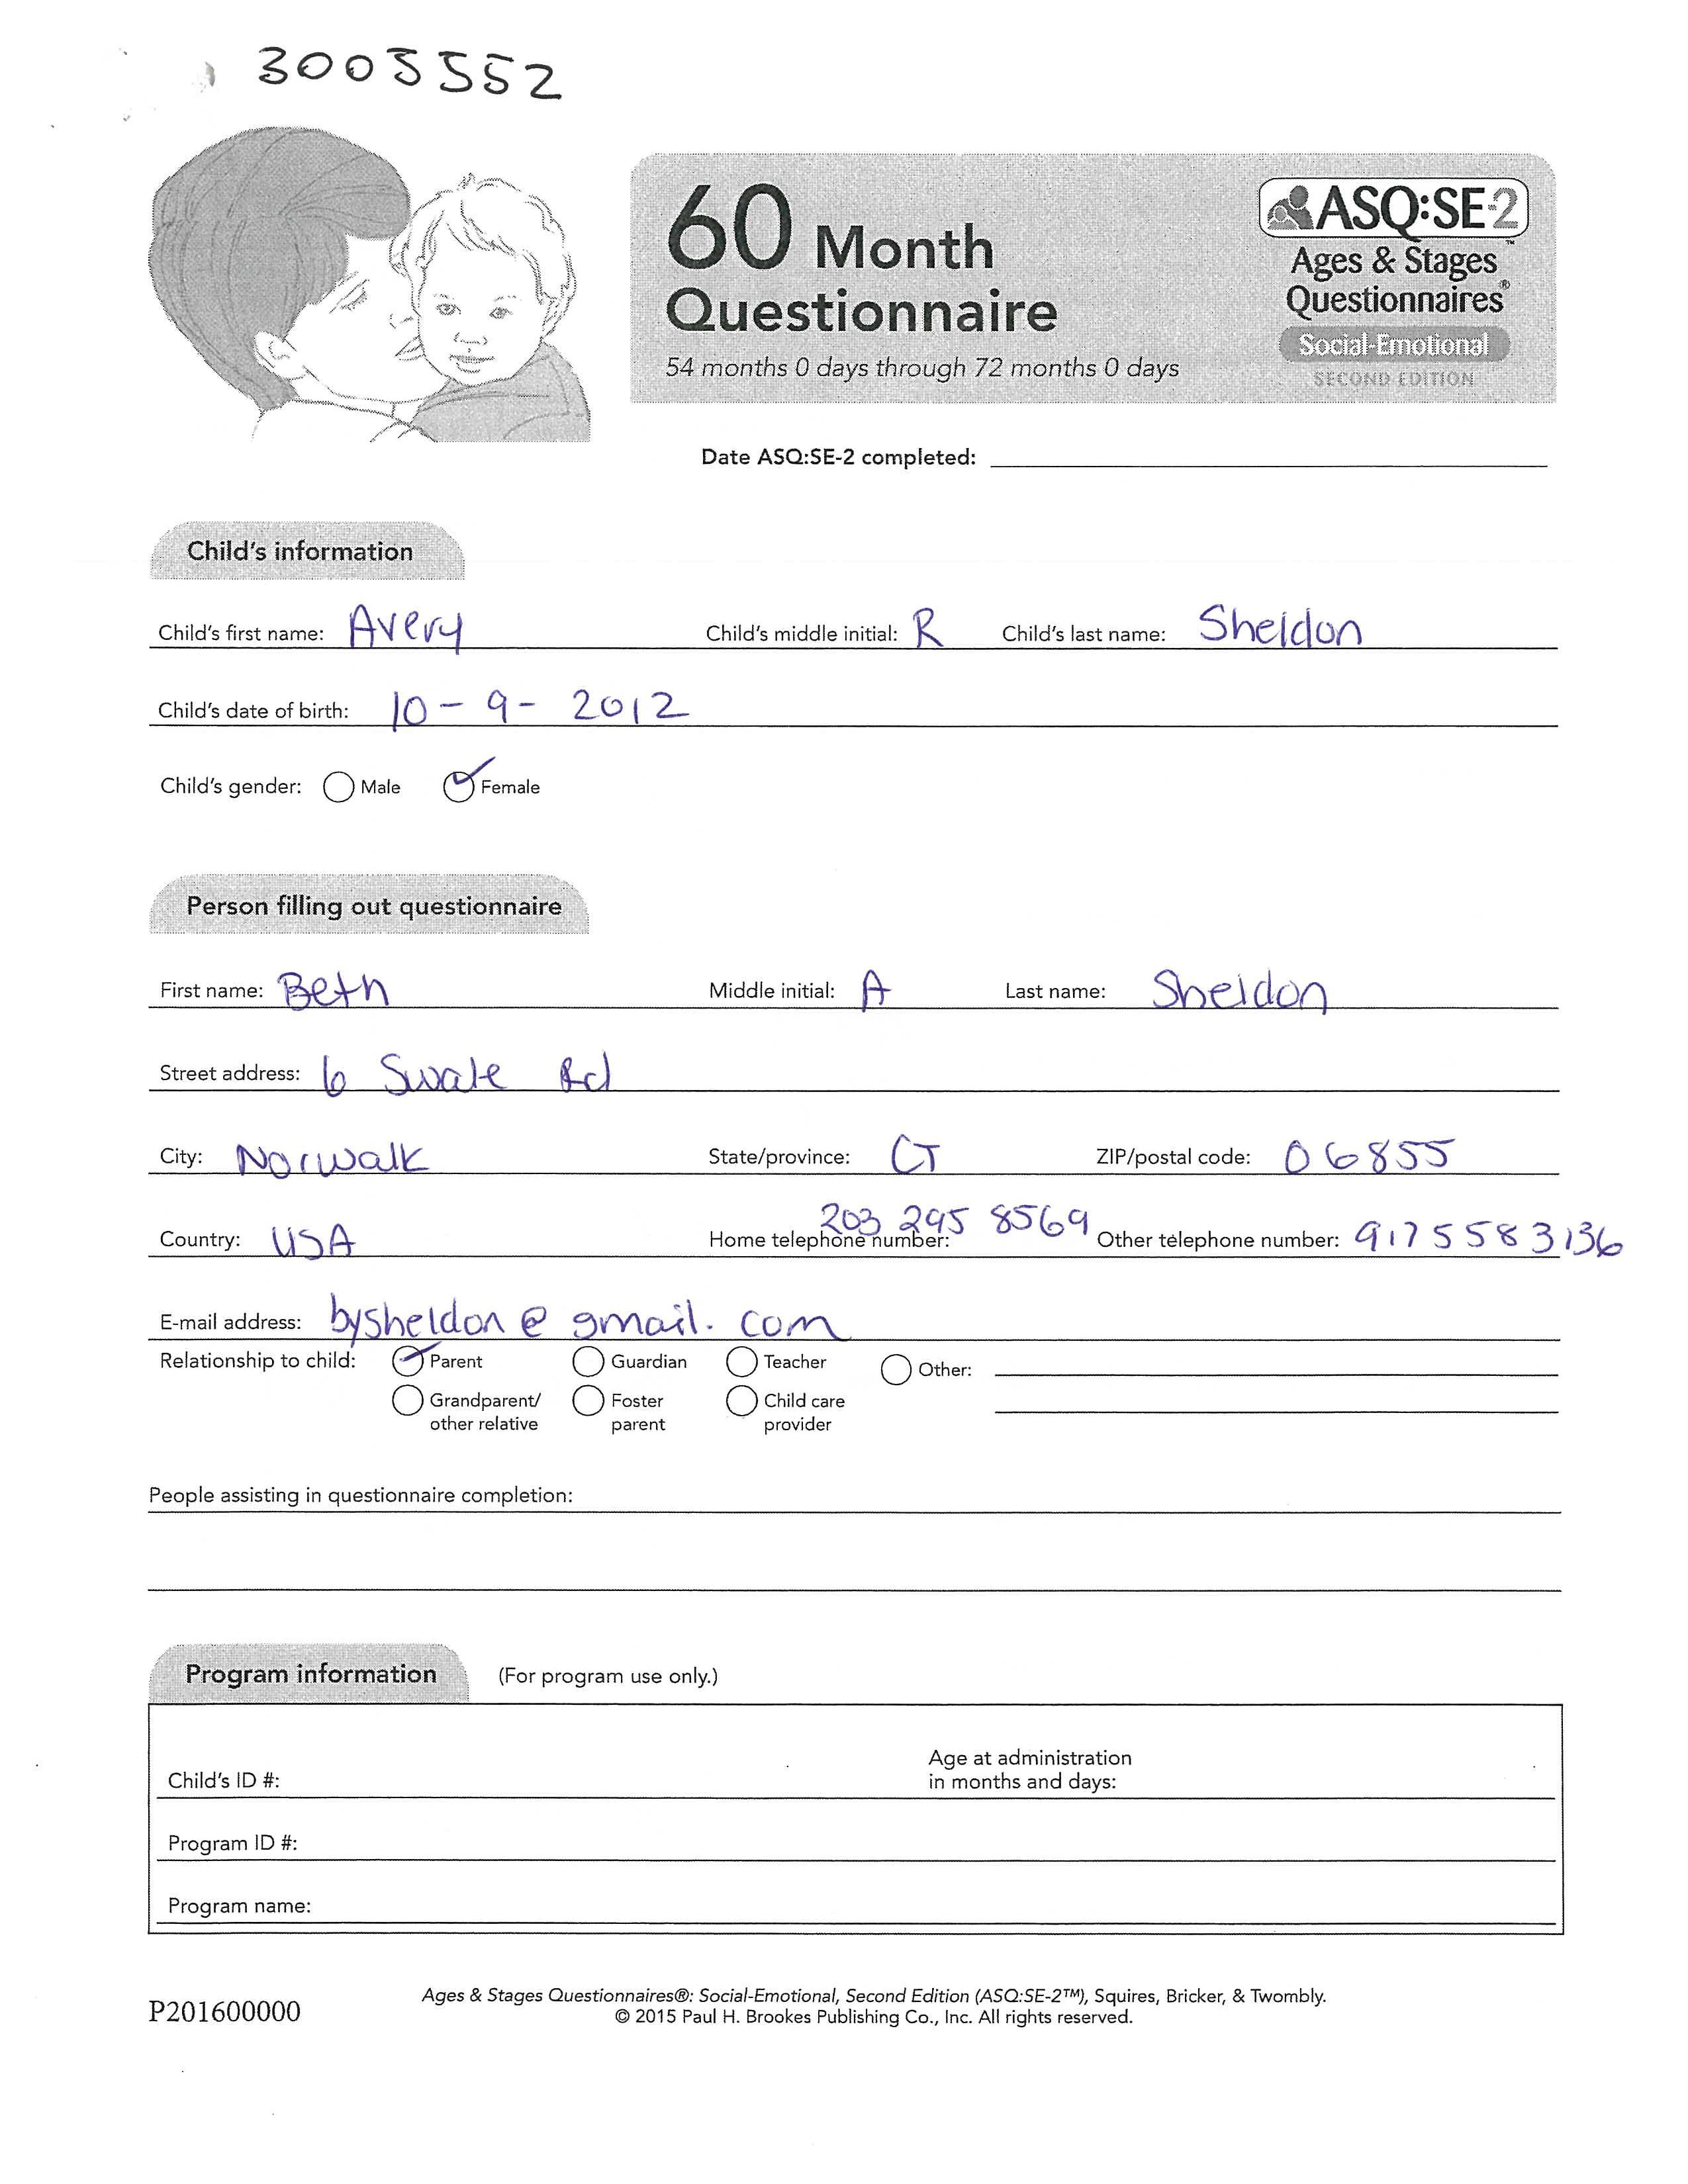 3005552
60 Month
Questionnaire
54 months 0 days through 72 months 0 days
ASQ:SE-2™
Ages & Stages
Questionnaires®
Social-Emotional
SECOND EDITION
Date ASQ:SE-2 completed:
Child's information
Child's first name: Avery Child's middle initial: R Child's last name: Sheldon
Child's date of birth: 10-9-2012
Child's gender: Male Female
Person filling out questionnaire
First name: Beth Middle initial: A Last name: Sheldon
Street address: 6 Swale Rd
City: Norwalk State/province: CT ZIP/postal code: 06855
Country: USA Home telephone number: 203 295 8569 Other telephone number: 9175583136
E-mail address: bysheldon@gmail.com
Relationship to child: Parent Guardian Teacher Other:
Grandparent/ Foster Child care
other relative parent provider
People assisting in questionnaire completion:
Program information (For program use only.)
Age at administration
Child's ID #: in months and days:
Program ID #:
Program name:
Ages & Stages Questionnaires®: Social-Emotional, Second Edition (ASQ:SE-2™), Squires, Bricker, & Twombly.
P201600000 © 2015 Paul H. Brookes Publishing Co., Inc. All rights reserved.